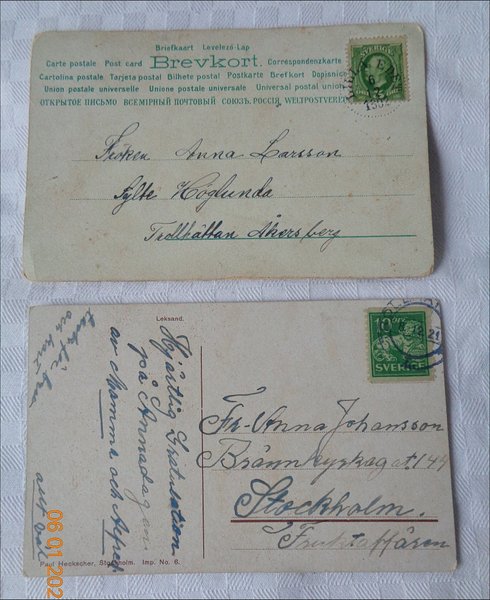 Briefkaart Levelező-Lap
Carte postale Post card Brevkort. Correspondenzkarte
Cartolina postale Tarjeta postal Bilhete postal Postkarte Brefkort Dopisnice
Union postale universelle Unione postale universale Union postal universal
ОТКРЫТОЕ ПИСЬМО ВСЕМІРНЫЙ ПОЧТОВЫЙ СОЮЗЪ. РОССІЯ. WELTPOSTVEREIN
SVERIGE
Fröken Anna Larsson
Fylte Höglunda
Trollhättan Åkersberg
Leksand.
10
SVERIGE
21
Hjärtlig Gratulation
på Annadagen
av Mamma och Alfred
och
allt väl
Fr. Anna Johansson
Brännkyrkagat. 144
Stockholm.
Fruktaffären
Paul Heckscher, Stockholm. Imp. No. 6.
06 01 202